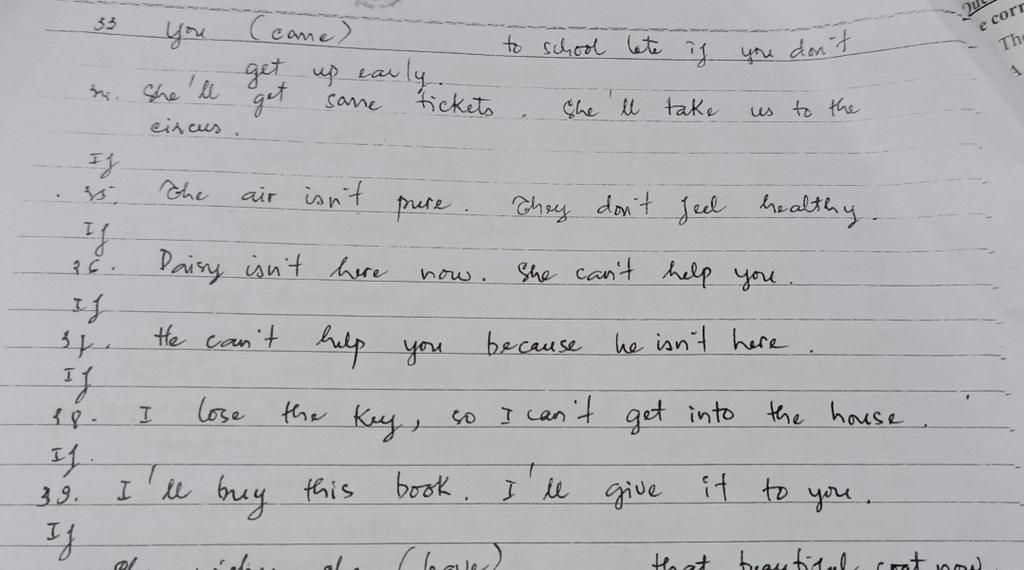 33 You (come) to school late if you don't
get up early.
34. She'll get some tickets. She'll take us to the
circus.
If
35. The air isn't pure. They don't feel healthy.
If
36. Daisy isn't here now. She can't help you.
If
37. He can't help you because he isn't here.
If
38. I lose the key, so I can't get into the house.
If.
39. I'll buy this book. I'll give it to you.
If
(have) that beautiful coat now
e corr
The